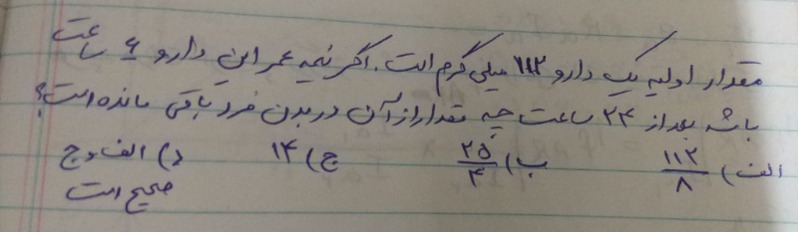 مقدار اولیه یک دارو ۱۱۲ میلی گرم است. اگر نیمه عمر این دارو ۶ ساعت
باشد بعد از ۲۴ ساعت چه مقدار از آن در بدن فرد باقی مانده است؟
الف) ۱۱۲/۸ ب) ۲۵/۴ ج) ۱۴ د) الف و ج
صحیح است